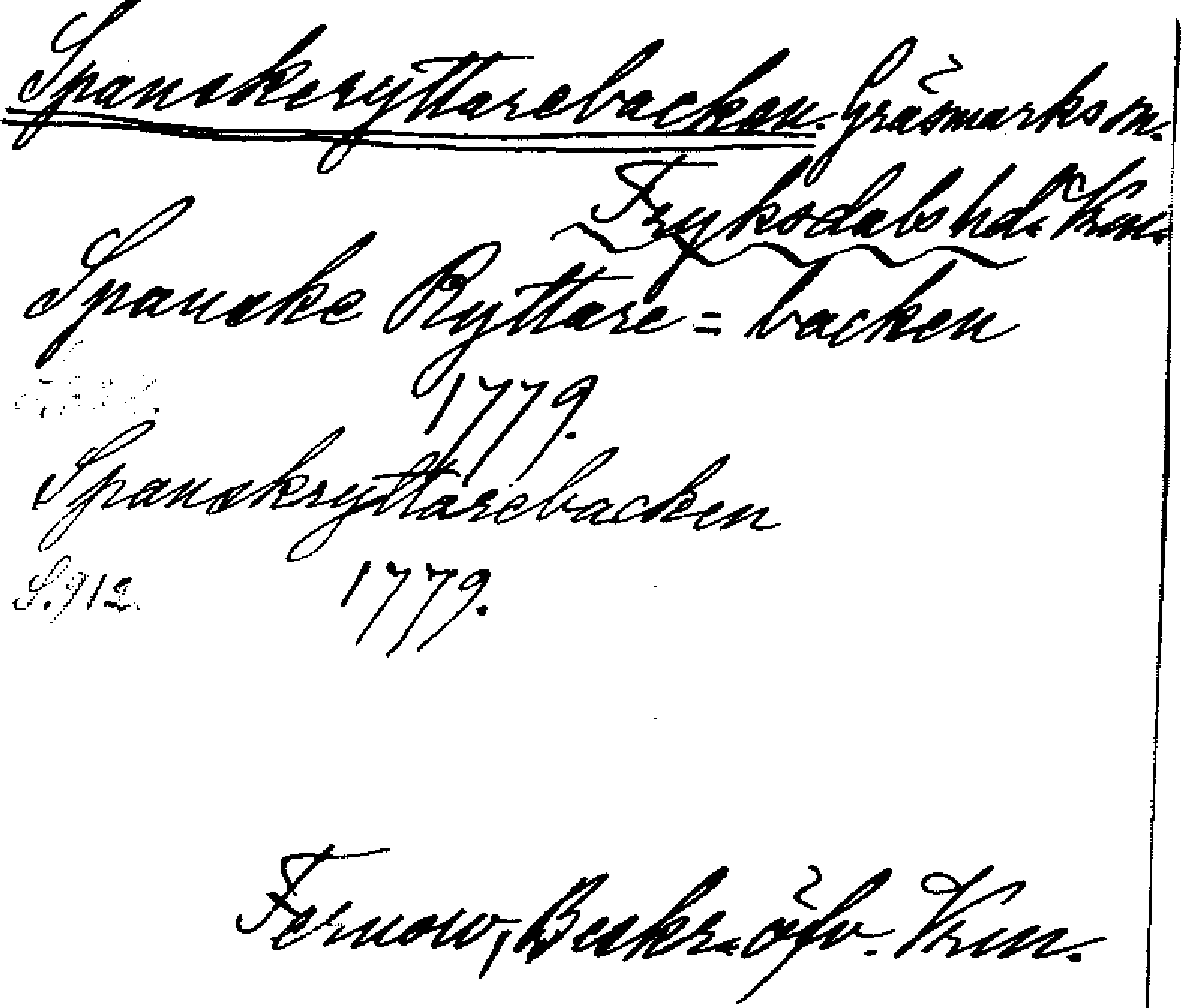 Spanskeryttarebacken. Gräsmarks sn.
Fryksdals hd. Vrm.
Spanske Ryttare = backen
1779.
Spanskryttarebacken
S. 912. 1779.
Fernow, Beskr. öfv. Vrm.